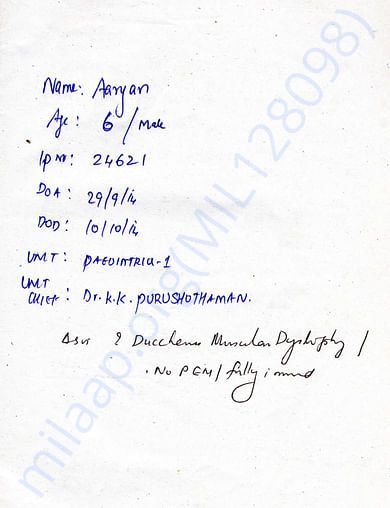 Name: Aaryan
Age: 6 / Male
Ip No: 24621
DOA: 29/9/14
DOD: 10/10/14
UNIT: PAEDIATRICS-1
UNIT
CHIEF: Dr. K.K. PURUSHOTHAMAN.
? Duchenne Muscular Dystrophy /
. No PEM / fully immnd
milaap.org(MIL128098)